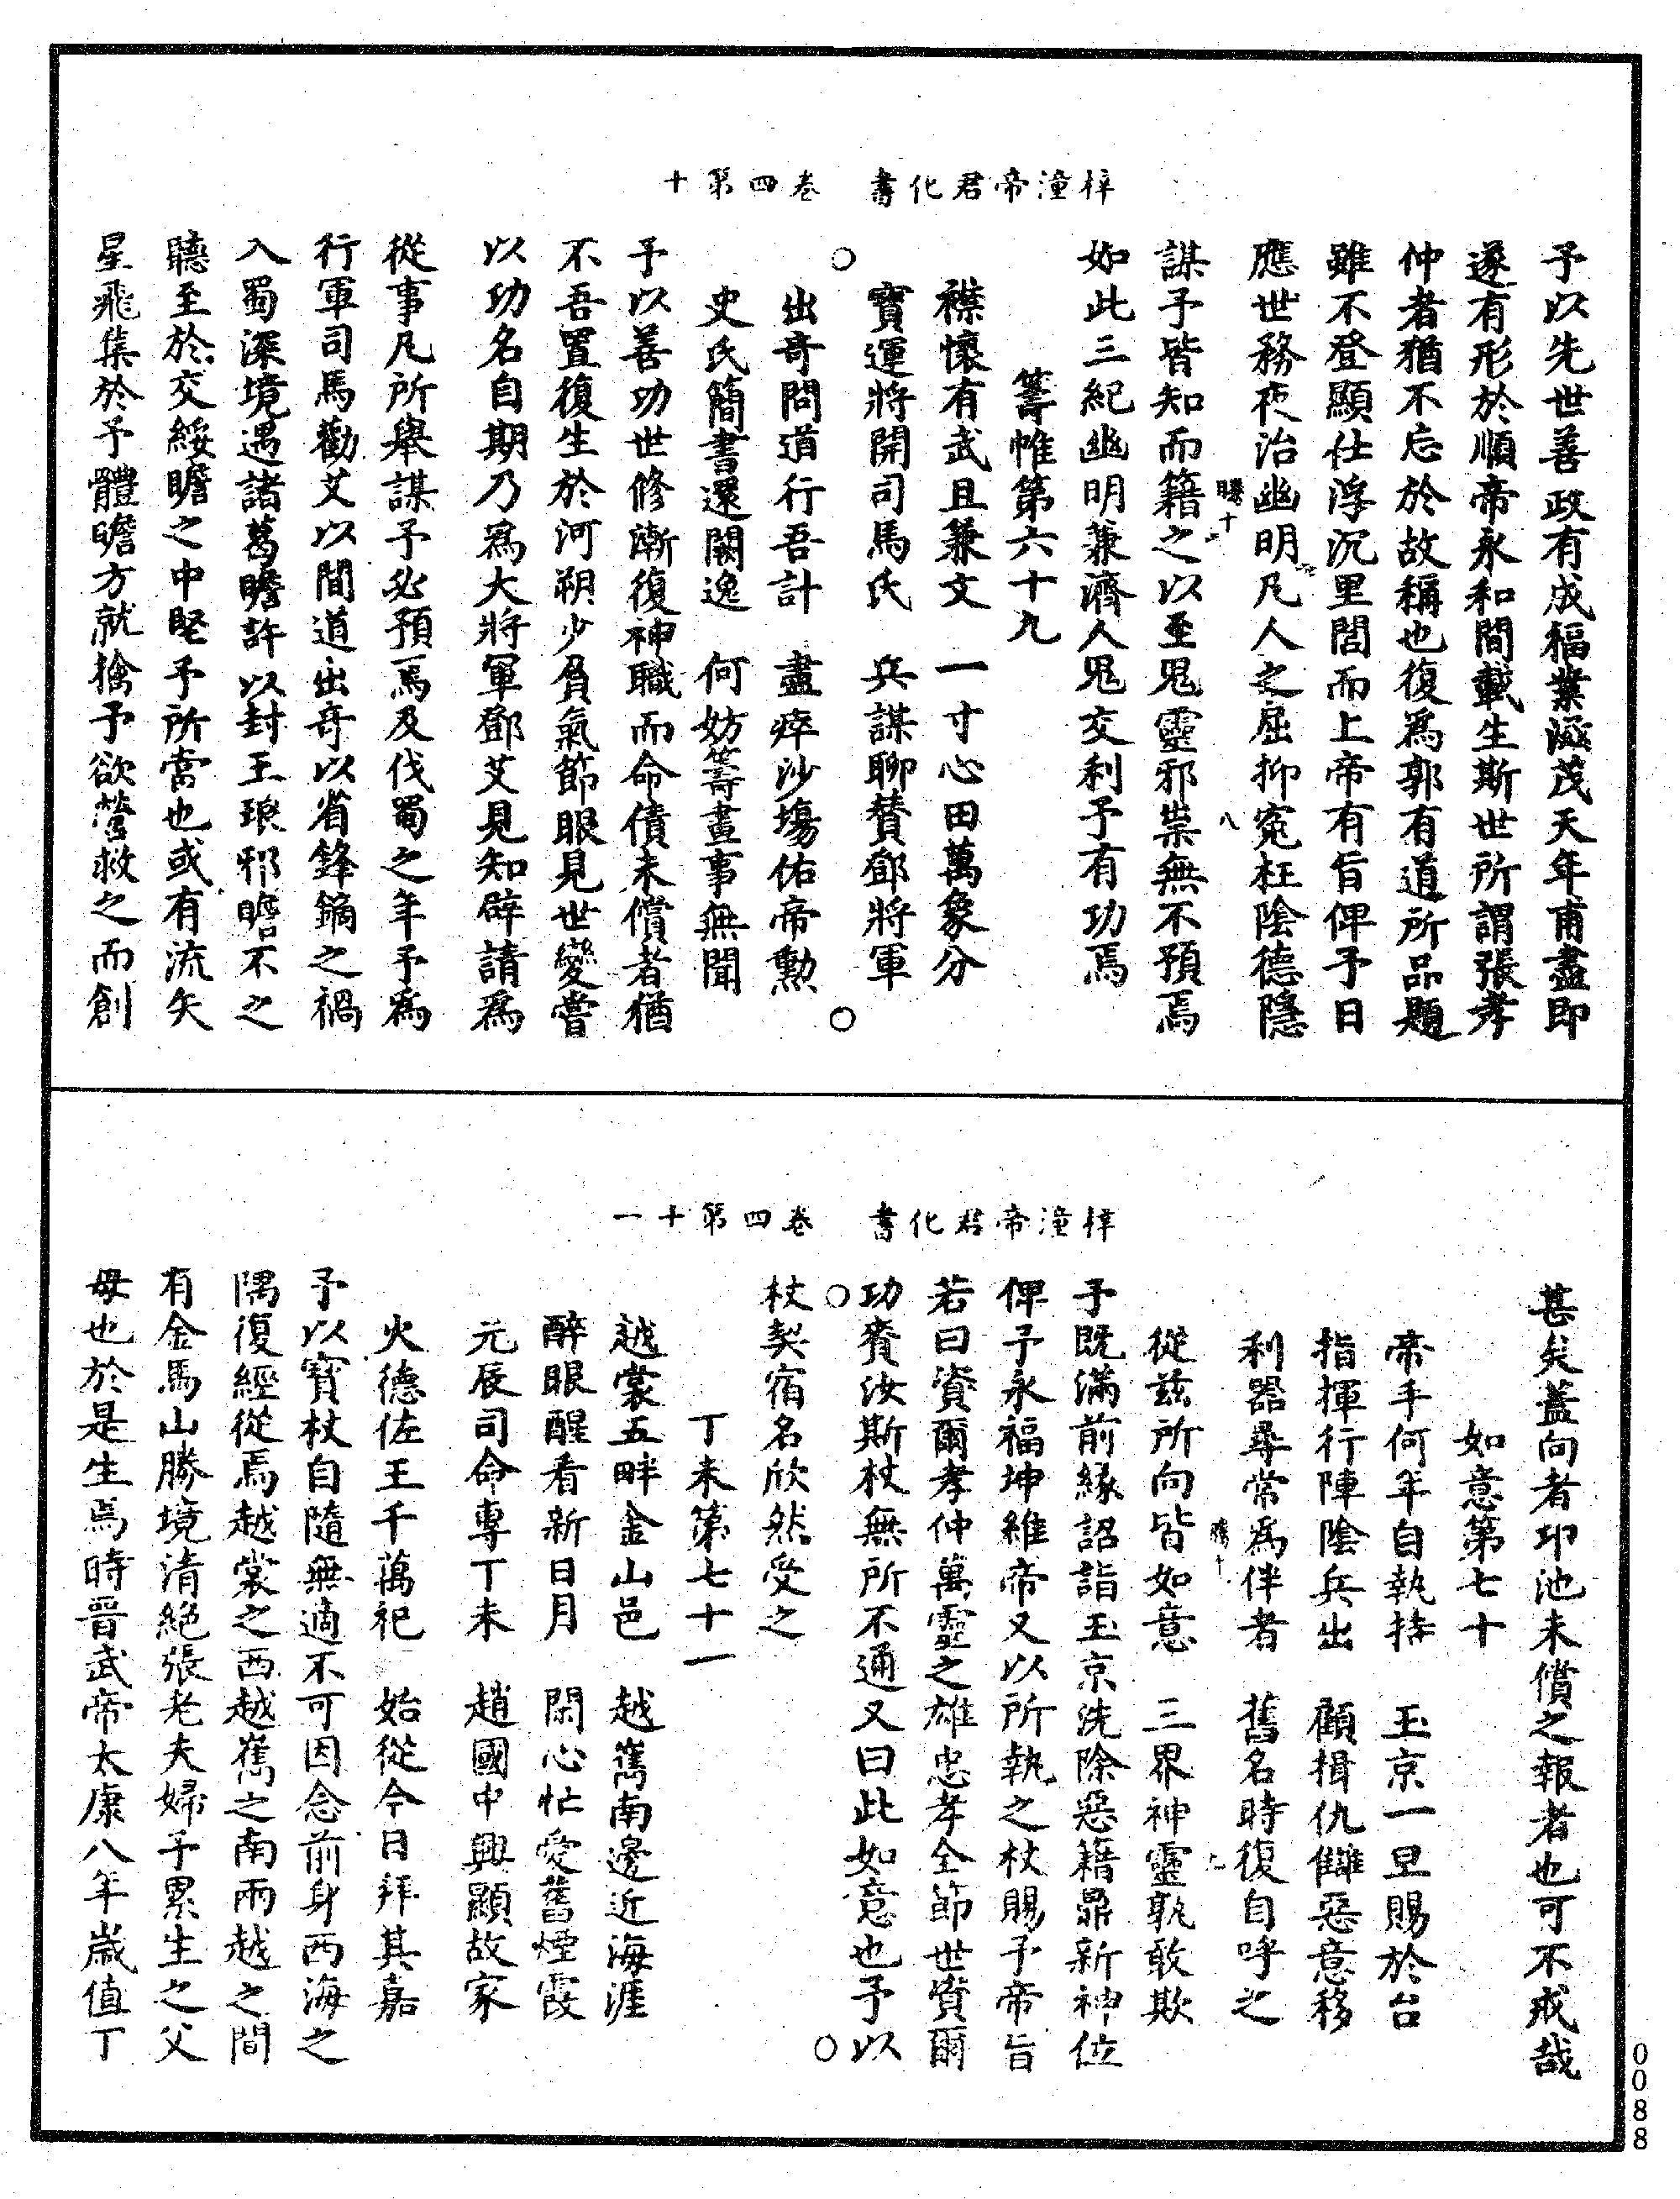 梓潼帝君化書　卷四第十
予以先世善政有成福業滋茂天年甫盡即
遂有形於順帝永和間載生斯世所謂張孝
仲者猶不忘於故稱也復為郭有道所品題
雖不登顯仕浮沉里閭而上帝有旨俾予日
應世務夜治幽明凡人之屈抑寃枉陰德隱
八
謀予皆知而籍之以至鬼靈邪祟無不預焉
如此三紀幽明兼濟人鬼交利予有功焉
籌帷第六十九
襟懷有武且兼文　一寸心田萬象分
寶運將開司馬氏　兵謀聊賛鄧將軍
出奇問道行吾計　盡瘁沙塲佑帝勲
史氏簡書還闕逸　何妨籌畫事無聞
予以善功世修漸復神職而命債未償者猶
不吾置復生於河朔少負氣節眼見世變嘗
以功名自期乃為大將軍鄧艾見知辟請為
從事凡所舉謀予必預焉及伐蜀之年予為
行軍司馬勸艾以間道出奇以省鋒鏑之禍
入蜀深境遇諸葛瞻許以封王琅邪瞻不之
聽至於交綏瞻之中堅予所當也或有流矢
星飛集於予體瞻方就擒予欲營救之而創
梓潼帝君化書　卷四第十一
甚矣蓋向者邛池未償之報者也可不戒哉
如意第七十
帝手何年自執持　玉京一旦賜於台
指揮行陣陰兵出　顧揖仇讎惡意移
利器尋常為伴者　舊名時復自呼之
從茲所向皆如意　三界神靈孰敢欺
予既滿前緣詔詣玉京洗除惡籍鼎新神位
俾予永福坤維帝又以所執之杖賜予帝旨
若曰資爾孝仲萬靈之雄忠孝全節世賞爾
功賚汝斯杖無所不通又曰此如意也予以
杖契宿名欣然受之
丁未第七十一
越裳五畔金山邑　越嶲南邊近海涯
醉眼醒看新日月　閑心忙愛舊煙霞
元辰司命專丁未　趙國中興顯故家
火德佐王千萬祀　始從今日拜其嘉
予以寶杖自隨無適不可因念前身西海之
隅復經從焉越裳之西越嶲之南兩越之間
有金馬山勝境清絕張老夫婦予累生之父
母也於是生焉時晉武帝太康八年歲值丁
0088